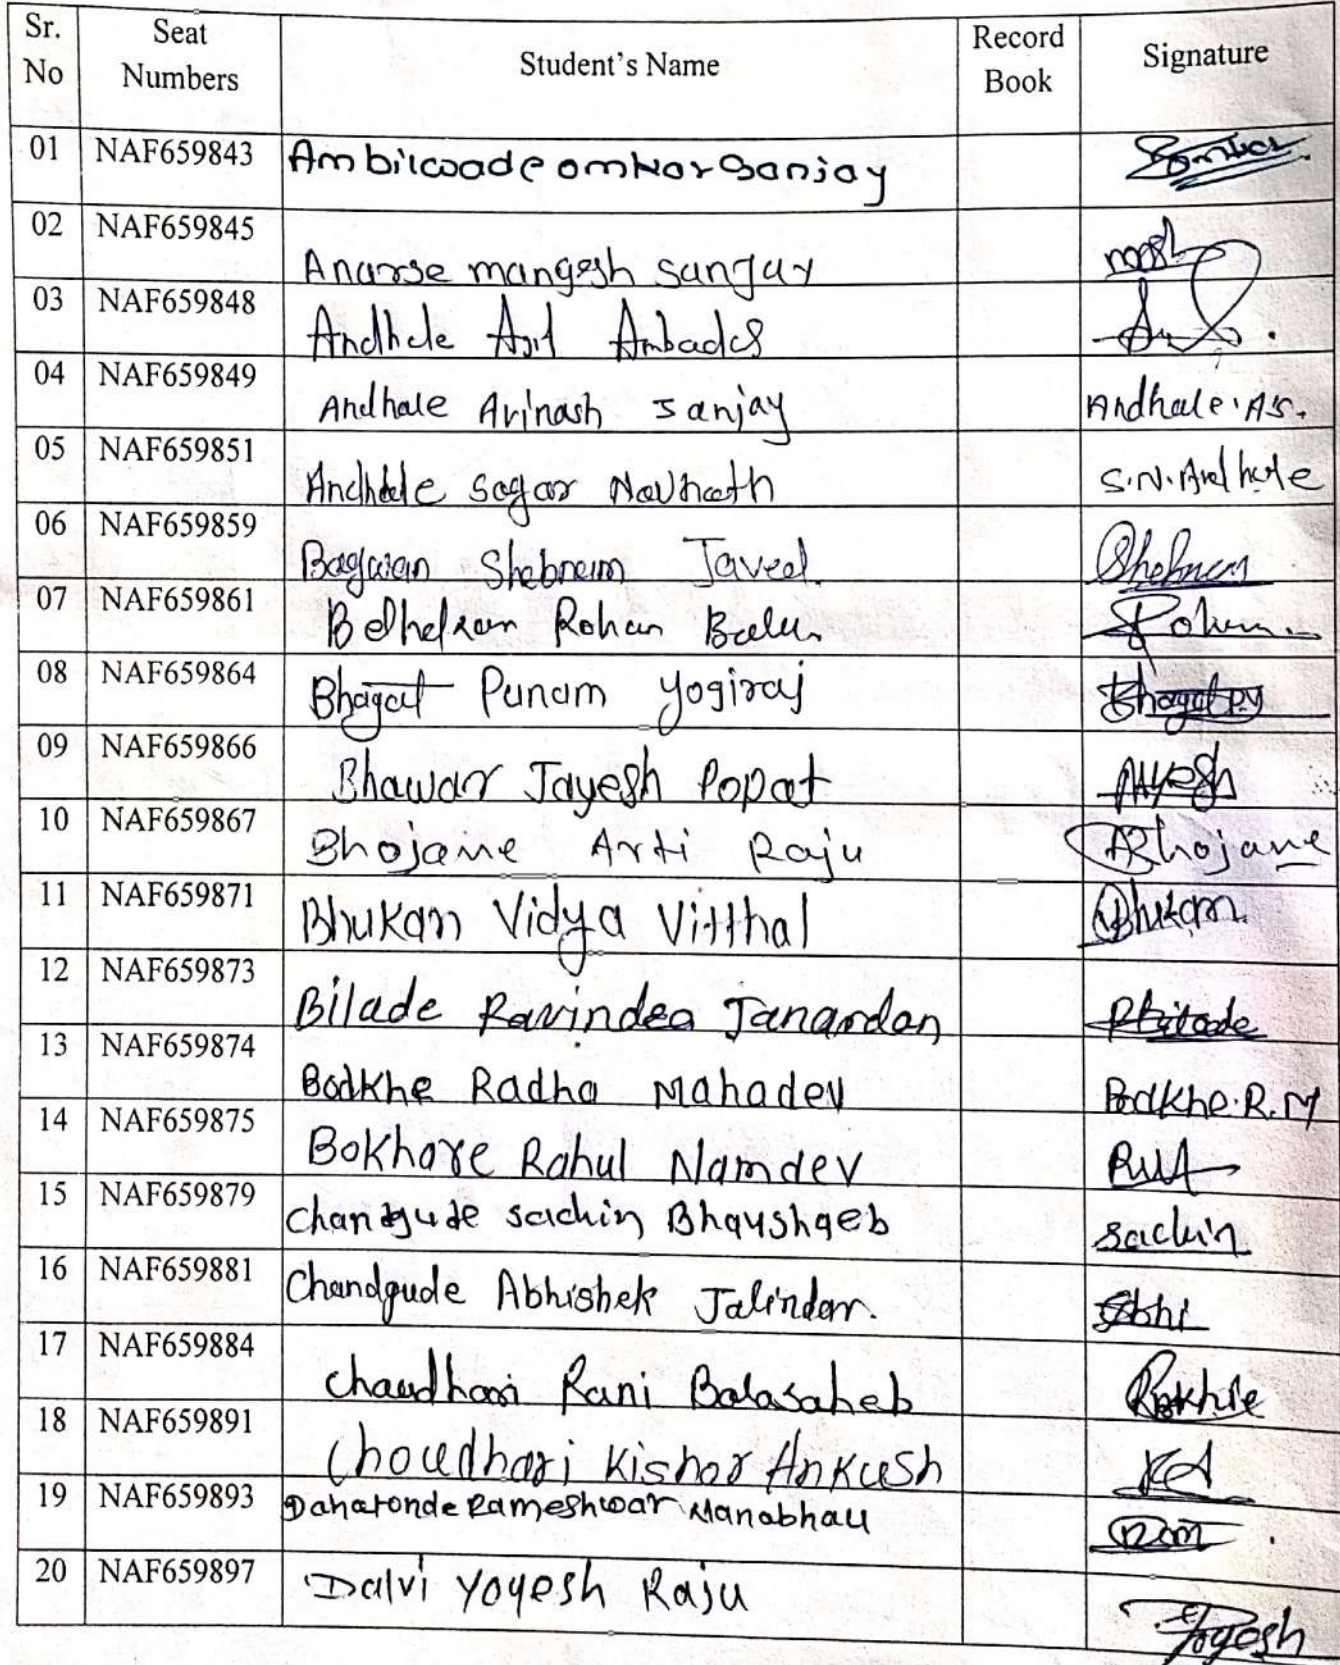 Sr. No Seat Numbers Student's Name Record Book Signature
01 NAF659843 Ambilwade omkar Sanjay Somkar
02 NAF659845 Anarse mangesh sanjay
03 NAF659848 Andhale Anil Ambadas
04 NAF659849 Andhale Avinash Sanjay Andhale.A.S.
05 NAF659851 Andhale sagar Navnath S.N.Andhale
06 NAF659859 Bagwan Shabnam Javed. Shabnam
07 NAF659861 Belhekar Rohan Balu. Rohan
08 NAF659864 Bhagat Punam Yogiraj Bhagat PY
09 NAF659866 Bhawar Jayesh Popat Jayesh
10 NAF659867 Bhojane Arti Raju ABhojane
11 NAF659871 Bhukan Vidya Vitthal VBhukan
12 NAF659873 Bilade Ravindra Janardan RBilade
13 NAF659874 Bodkhe Radha Mahadev Bodkhe.R.M
14 NAF659875 Bokhare Rahul Namdev
15 NAF659879 Chandgude sachin Bhaushaeb sachin
16 NAF659881 Chandgude Abhishek Jalindar. Abhi
17 NAF659884 Chaudhari Rani Balasaheb
18 NAF659891 Choudhari Kishor Ankush KA
19 NAF659893 Dahatonde Rameshwar Nanabhau
20 NAF659897 Dalvi Yogesh Raju Yogesh